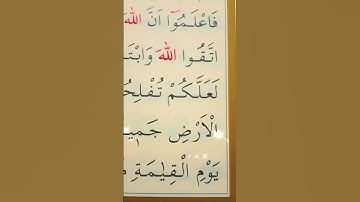 فَاعْلَمُوٓا اَنَّ اللّٰهَ
اتَّقُوا اللّٰهَ وَابْتَـ
لَعَلَّكُمْ تُفْلِحُـ
الْاَرْضِ جَمٖيـ
يَوْمِ الْقِيٰمَةِ مَـ